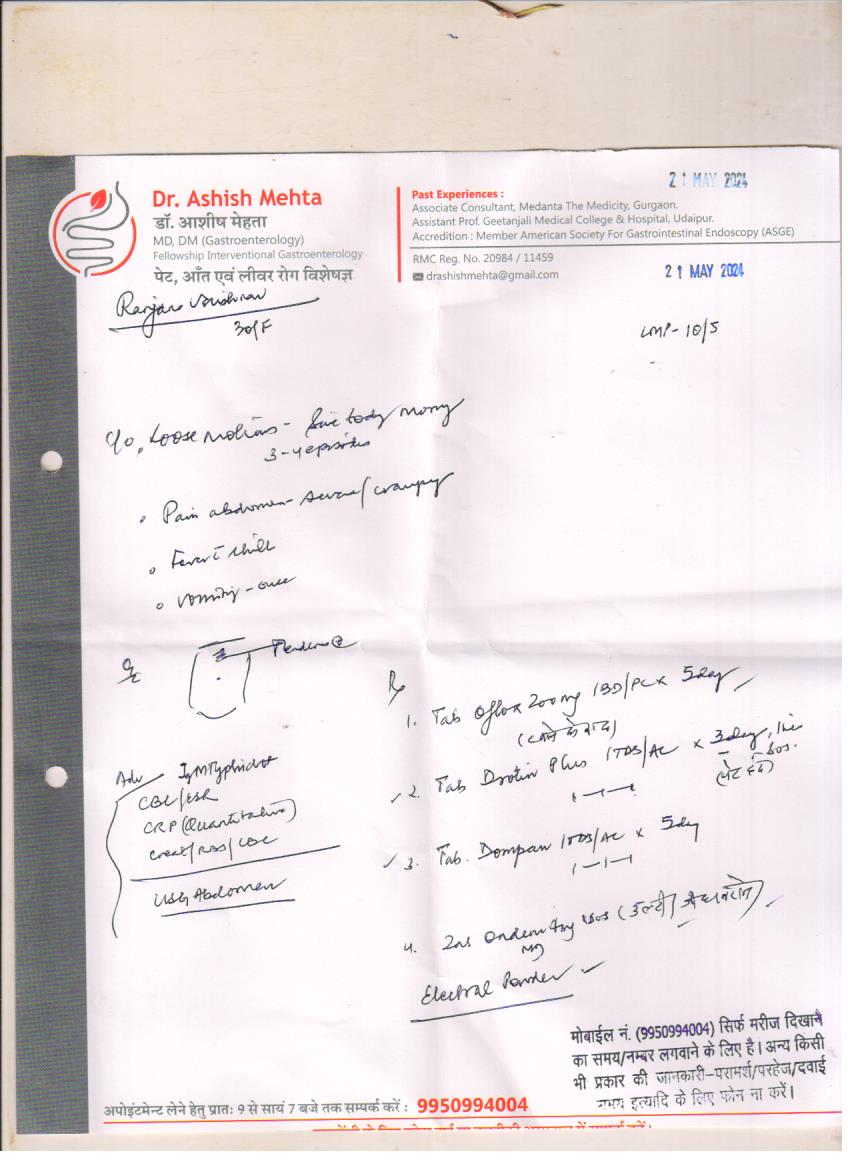 21 MAY 2024
Dr. Ashish Mehta
डॉ. आशीष मेहता
MD, DM (Gastroenterology)
Fellowship Interventional Gastroenterology
पेट, आँत एवं लीवर रोग विशेषज्ञ
Past Experiences :
Associate Consultant, Medanta The Medicity, Gurgaon.
Assistant Prof. Geetanjali Medical College & Hospital, Udaipur.
Accreditation : Member American Society For Gastrointestinal Endoscopy (ASGE)
RMC Reg. No. 20984 / 11459
drashishmehta@gmail.com
21 MAY 2024
30/F
LMP - 10/5
c/o. Loose motions -
3-4 episodes
Pain abdomen - severe/ crampy
Fever c chill
Vomiting - once
O/E
Rx
1. Tab Oflox 200mg 1BD/PC x 5day
(खाने के बाद)
2. Tab Drotin Plus 1TDS/AC x 3day,
SOS.
(पेट दर्द)
1-1-1
3. Tab. Dompan 1TDS/AC x 5day
1-1-1
4. SOS (उल्टी/
Electral Powder
Adv
IgM Typhidot
CBC/ESR
CRP (Quantitative)
Creat/RBS/
USG Abdomen
मोबाईल नं. (9950994004) सिर्फ मरीज दिखाने
का समय/नम्बर लगवाने के लिए है। अन्य किसी
भी प्रकार की जानकारी-परामर्श/परहेज/दवाई
समय इत्यादि के लिए फोन ना करें।
अपोइंटमेन्ट लेने हेतु प्रातः 9 से सायं 7 बजे तक सम्पर्क करें : 9950994004